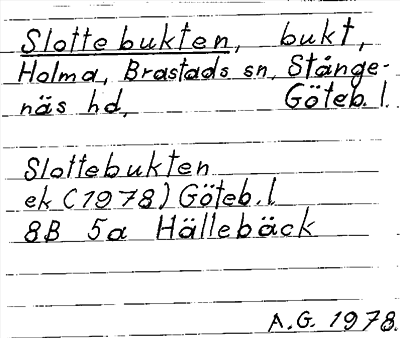 Slottebukten, bukt,
Holma, Brastads sn, Stånge-
näs hd, Göteb. l.
Slottebukten
ek (1978) Göteb. l
8B 5a Hällebäck
A.G. 1978.